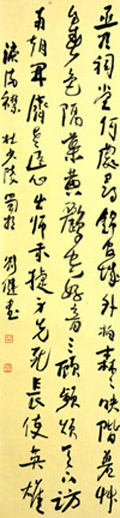 丞相祠堂何處尋錦官城外柏森森映階碧草
自春色隔葉黃鸝空好音三顧頻煩天下計
兩朝開濟老臣心出師未捷身先死長使英雄
淚滿襟 杜少陵蜀相 劉書